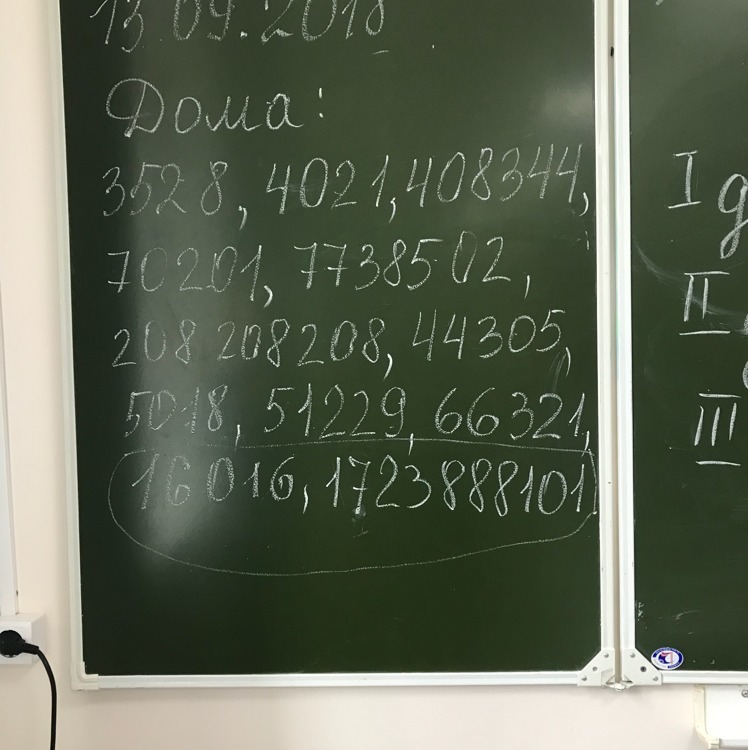 13.09.2018
Дома:
3528, 4021, 408344,
70201, 7738502,
208 208208, 44305,
5018, 51229, 66321,
16016, 1723888101
I
II
III